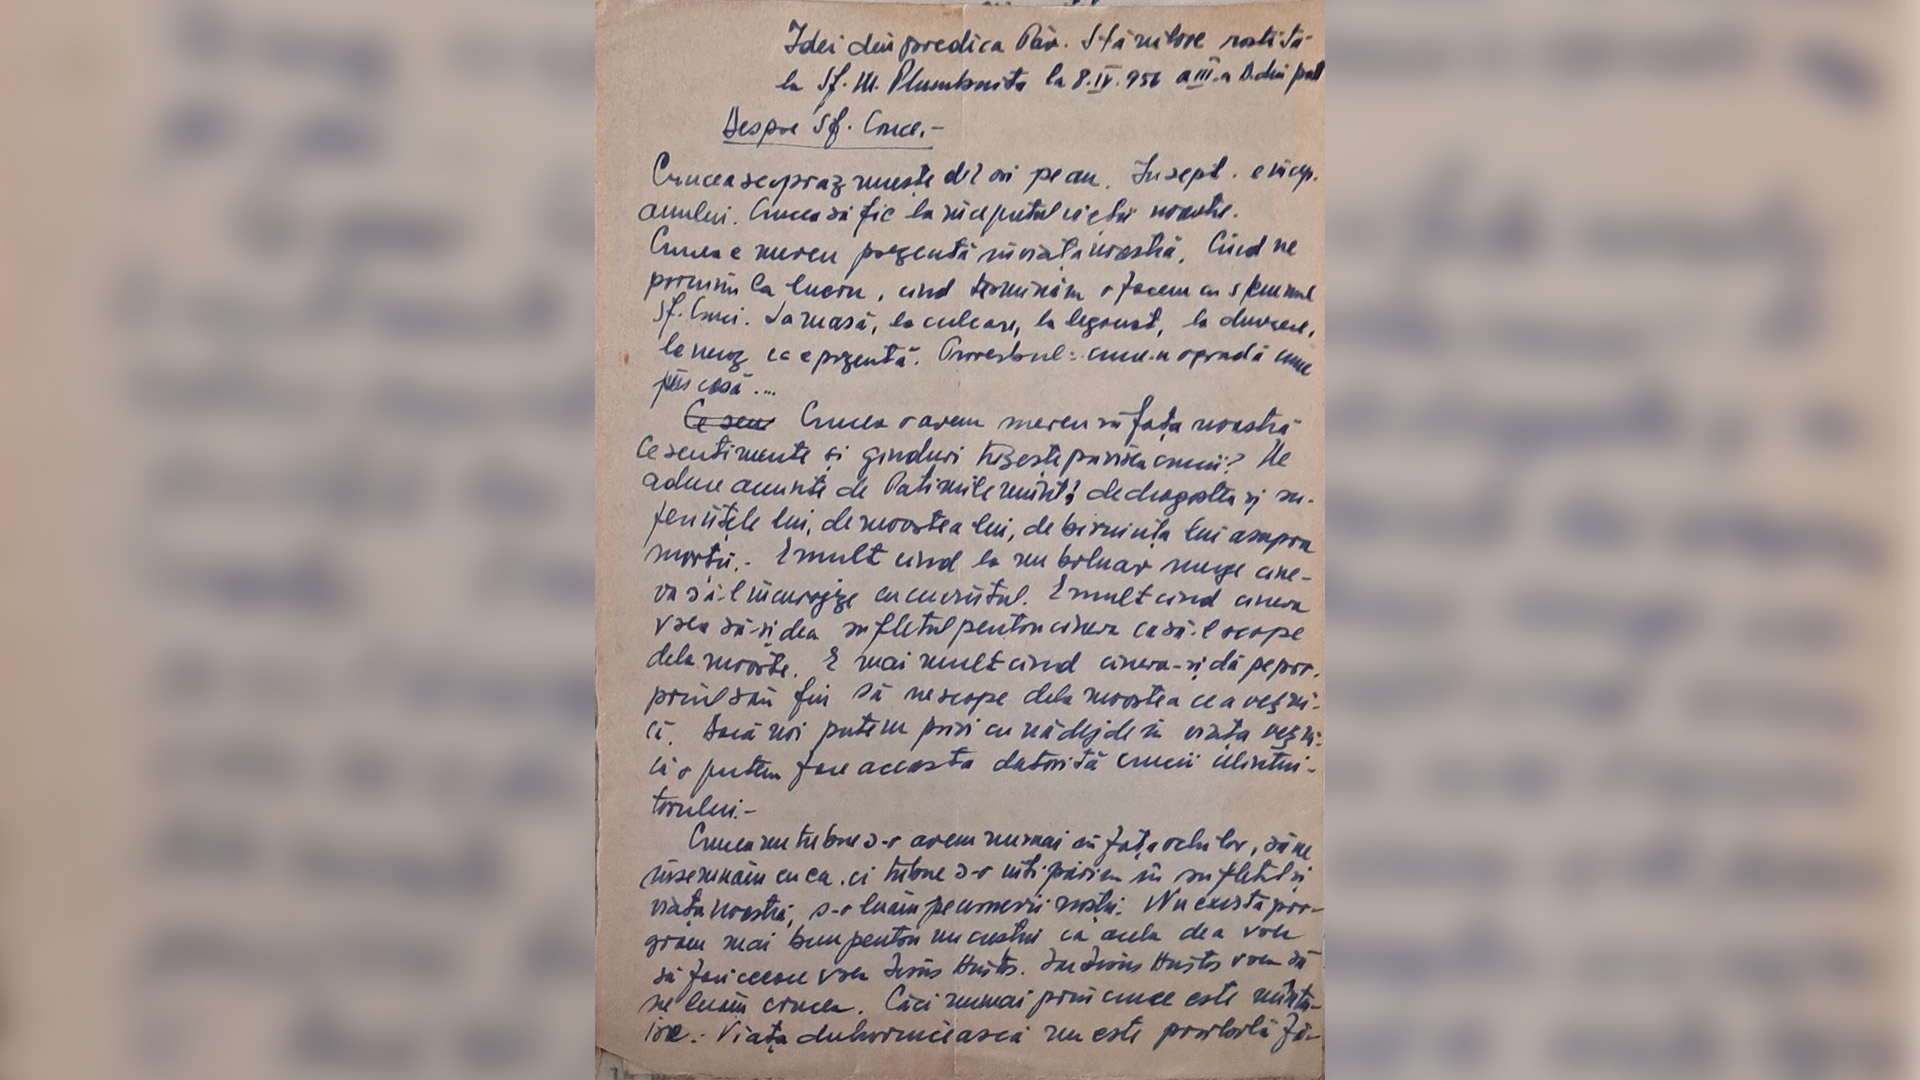 Idei din predica Păr. Stăniloae rostită
la Sf. M. Plumbuita la 8.IV.956 a III-a D. din post
Despre Sf. Cruce.-
Crucea se prăznuește de 2 ori pe an. In sept. e încep.
anului. Crucea să fie la începutul vieții noastre.
Crucea e mereu prezentă în viața noastră. Cînd ne
pornim la lucru, cînd terminăm o facem cu semnul
Sf. Cruci. La masă, la culcare, la
la ea e prezentă. Proverbul: cruce-n ogradă cruce
prin casă....
Ce sen Crucea o avem mereu în fața noastră
Ce sentimente și gînduri trezește privirea crucii? Ne
aduce aminte de Patimile de dragostea și su-
ferințele lui, de moartea lui, de biruința lui asupra
morții.- E mult cînd la un bolnav merge cine-
va să-l încurajeze cu cuvîntul. E mult cînd cineva
vrea să-și dea sufletul pentru cineva ca să-l scape
dela moarte. E mai mult cînd cineva-și dă pe pro-
priul său fiu să ne scape dela moartea cea veșni-
că. Dacă noi putem privi cu nădejde în viața veșni-
că o putem face aceasta datorită crucii Mîntui-
torului.-
Crucea nu trebue s-o avem numai în fața ochilor, să ne
însemnăm cu ea, ci trebue s-o întipărim în sufletul și
viața noastră, s-o luăm pe umerii noștri. Nu există pro-
gram mai bun pentru un creștin ca acela de a voi
să faci ceeace vrea Iisus Hristos. Iar Iisus Hristos vrea să
ne luăm crucea. Căci numai prin cruce este mîntu-
ire. Viața duhovnicească nu este posibilă fă-